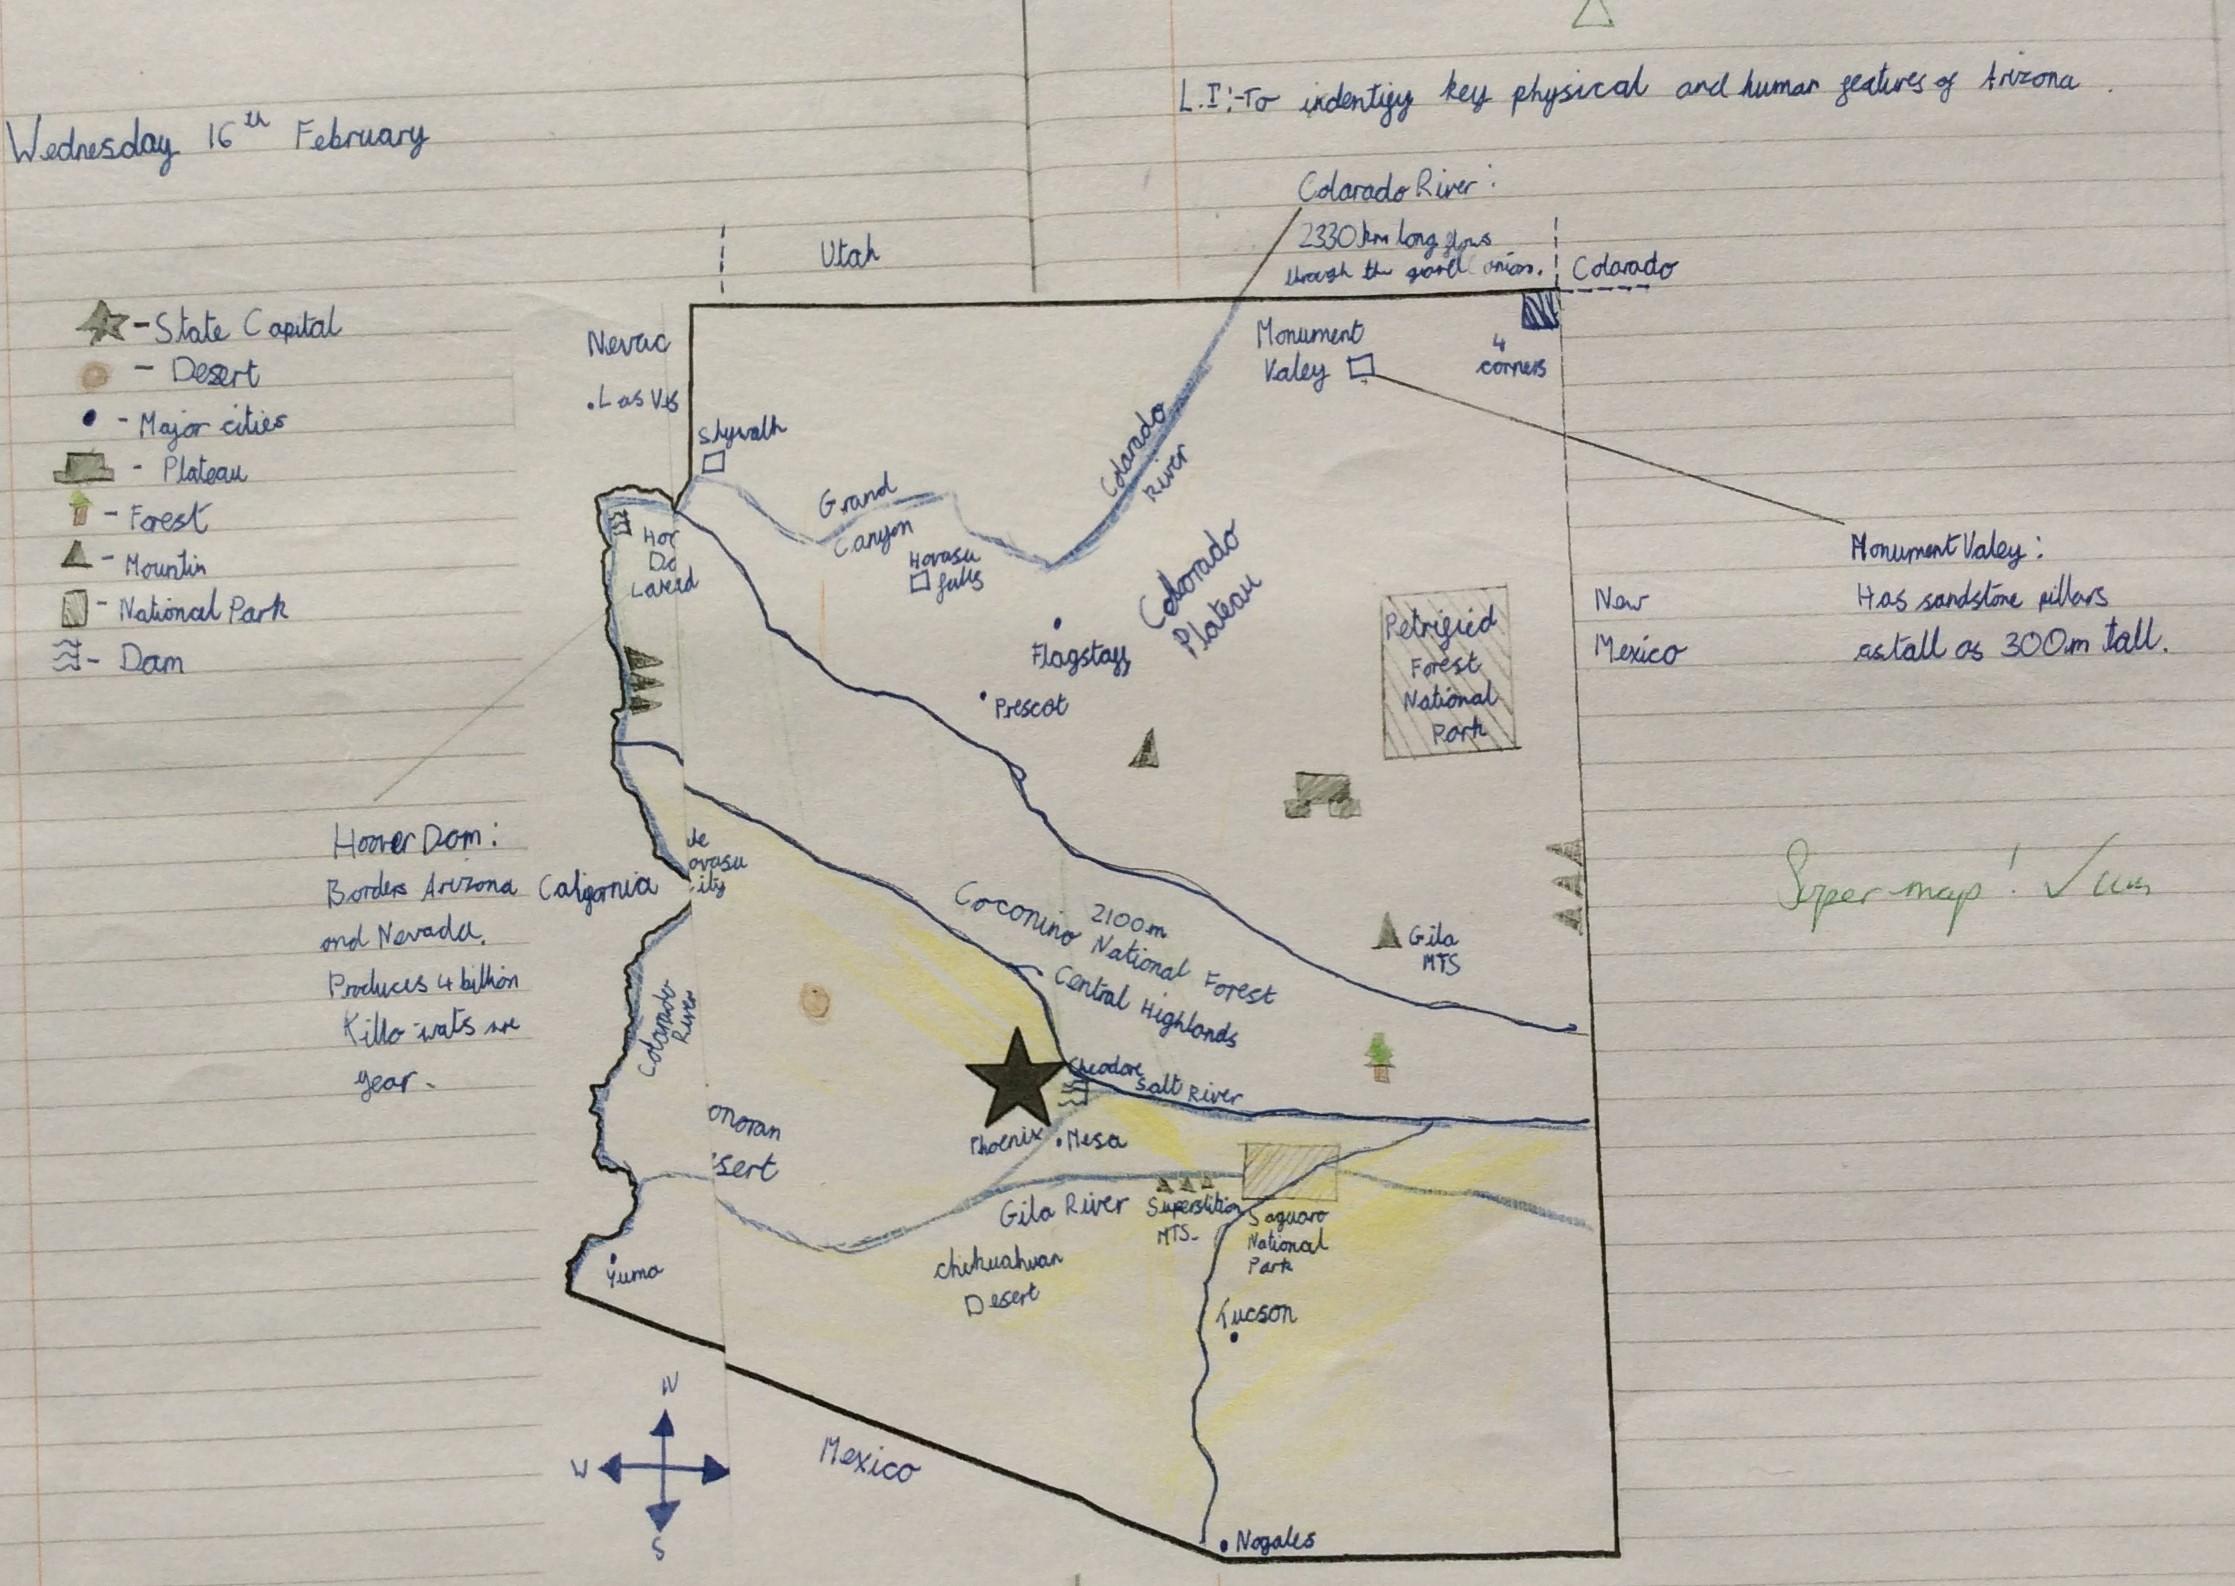 Wednesday 16th February
L.I:-To indentify key physical and human features of Arizona.
Colarado River:
2330km long flows
through the
Utah
Colarado
State Capital
- Desert
- Major cities
- Plateau
- Forest
- Mountin
- National Park
- Dam
Nevac
Las
Skywalk
Monument
Valey
4
corners
Colarado
River
Grand
Canyon
Havasu
falls
Hor
Do
Colorado
Plateau
Flagstaff
Prescot
Petrified
Forest
National
Park
New
Mexico
Monument Valey:
Has sandstone pillars
as tall as 300m tall.
Hoover Dam:
Borders Arizona
and Nevada.
Produces 4 billion
Killo wats
year.
California
ovasu
ity
Super map! ✓
Coconino National Forest
2100m
Central Highlands
Gila
MTS
Colarado
River
Theodore
Salt River
Phoenix
Mesa
onoran
sert
Gila River
Superstition
MTS.
Saguaro
National
Park
Chihuahuan
Desert
Yuma
Tucson
N
W
S
Mexico
Nogales